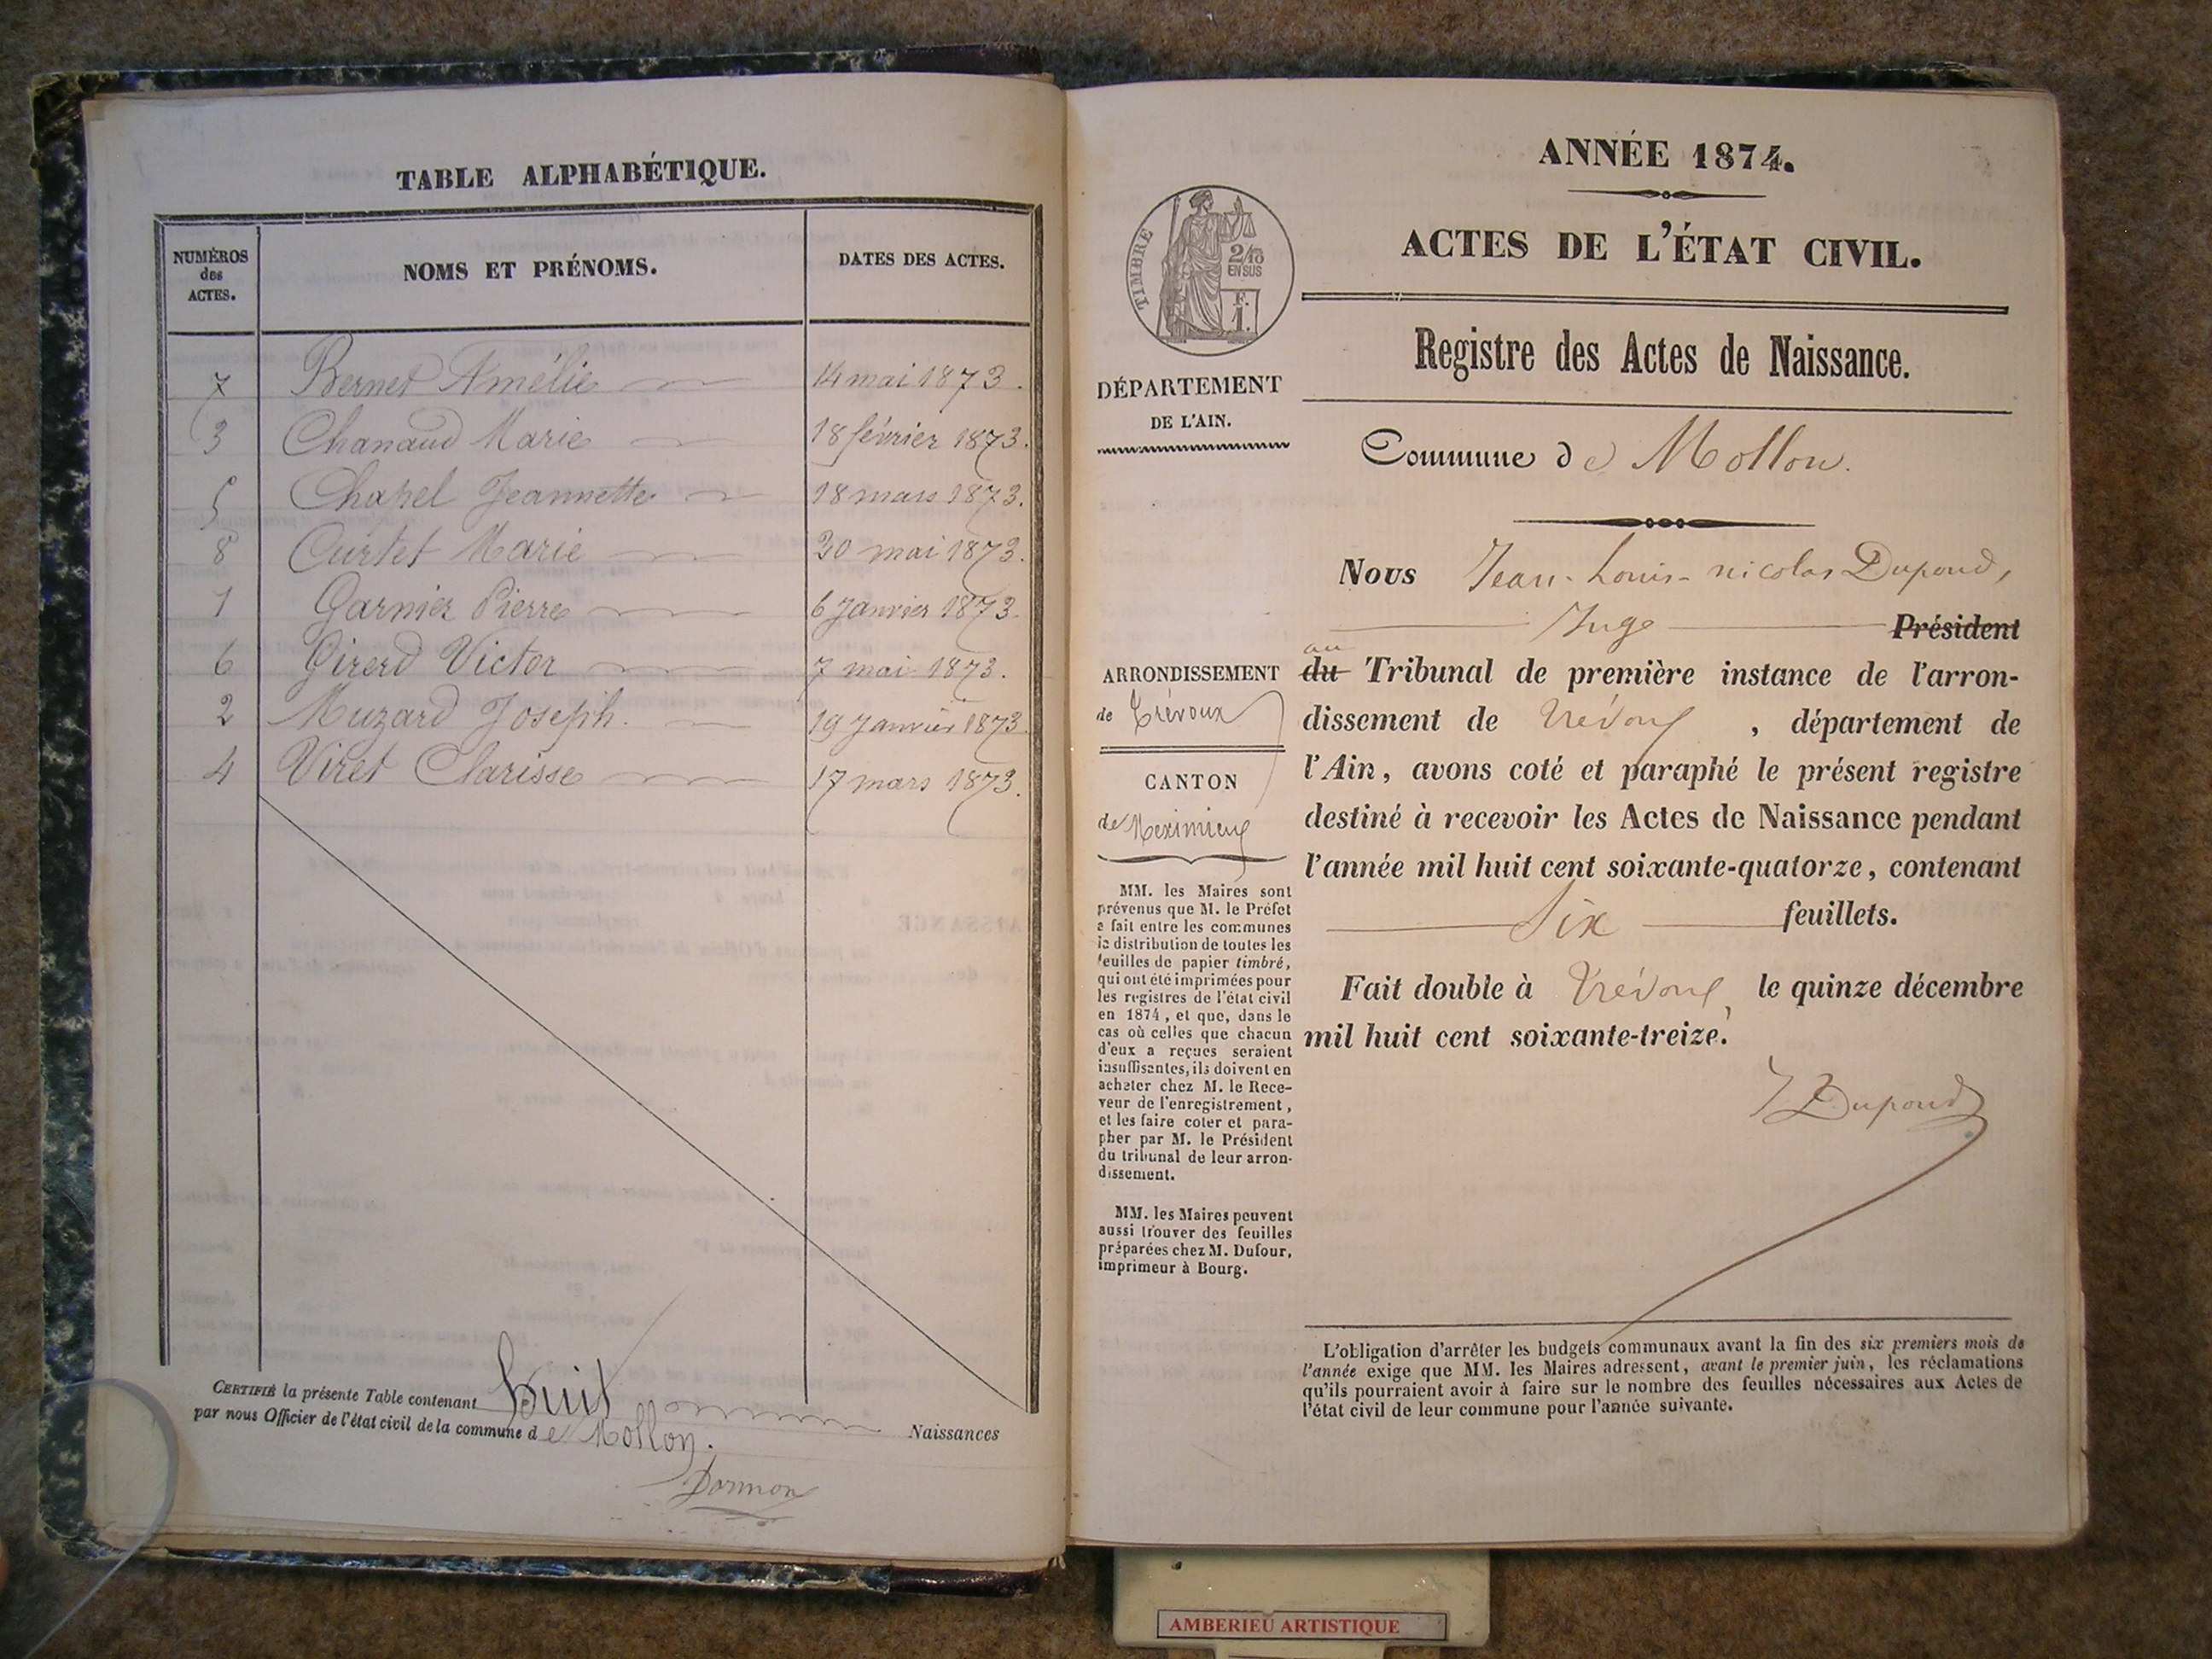 TABLE ALPHABÉTIQUE.
NUMÉROS des ACTES. NOMS ET PRÉNOMS. DATES DES ACTES.
7 Bernet Amélie 14 mai 1873.
3 Chanaud Marie 18 février 1873.
5 Chapel Jeannette 18 mars 1873.
8 Curtet Marie 30 mai 1873.
1 Garnier Pierre 6 Janvier 1873.
6 Girerd Victor 7 mai 1873.
2 Muzard Joseph. 19 Janvier 1873.
4 Viret Clarisse 17 mars 1873.
CERTIFIÉ la présente Table contenant huit Naissances
par nous Officier de l'état civil de la commune de Mollon.
ANNÉE 1874.
ACTES DE L'ÉTAT CIVIL.
Registre des Actes de Naissance.
TIMBRE
2/10
EN SUS
F.
1.
DÉPARTEMENT
DE L'AIN.
ARRONDISSEMENT
de Trévoux
CANTON
de Meximieux
MM. les Maires sont
prévenus que M. le Préfet
a fait entre les communes
la distribution de toutes les
feuilles de papier timbré,
qui ont été imprimées pour
les registres de l'état civil
en 1874, et que, dans le
cas où celles que chacun
d'eux a reçues seraient
insuffisantes, ils doivent en
acheter chez M. le Rece-
veur de l'enregistrement,
et les faire coter et para-
pher par M. le Président
du tribunal de leur arron-
dissement.
MM. les Maires peuvent
aussi trouver des feuilles
préparées chez M. Dufour,
imprimeur à Bourg.
Commune de Mollon.
Nous Jean-Louis-nicolas Dupond,
Juge Président
au
du Tribunal de première instance de l'arron-
dissement de Trévoux, département de
l'Ain, avons coté et paraphé le présent registre
destiné à recevoir les Actes de Naissance pendant
l'année mil huit cent soixante-quatorze, contenant
Six feuillets.
Fait double à Trévoux, le quinze décembre
mil huit cent soixante-treize.
Dupond
L'obligation d'arrêter les budgets communaux avant la fin des six premiers mois de
l'année exige que MM. les Maires adressent, avant le premier juin, les réclamations
qu'ils pourraient avoir à faire sur le nombre des feuilles nécessaires aux Actes de
l'état civil de leur commune pour l'année suivante.
AMBERIEU ARTISTIQUE